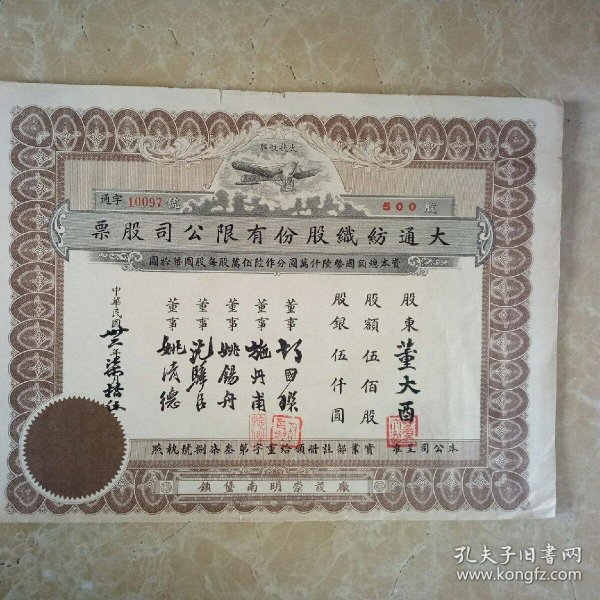 通字 10097 號
500 股
大通紡織股份有限公司股票
資本總額國幣陸仟萬圓分作陸佰萬股每股國幣拾圓
股東 董大酉
股額 伍佰股
股銀 伍仟圓
董事
董事 施丹甫
董事 姚錫舟
董事
董事 姚清德
中華民國
本公司呈准 實業部註冊頒給 字第叁柒捌號執照
廠設崇明南堡鎮
孔夫子旧书网
www.kongfz.com